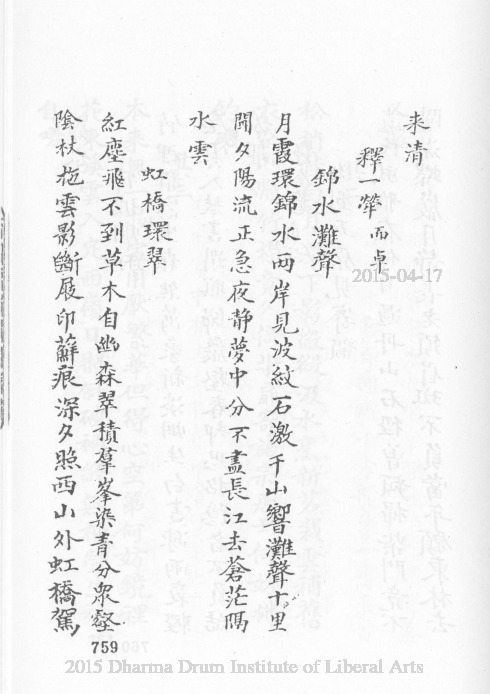 来清
釋一犖而卓
錦水灘聲
月霞環錦水兩岸見波紋石激千山響灘聲十里
聞夕陽流正急夜静夢中分不盡長江去蒼茫隔
水雲
虹橋環翠
紅塵飛不到草木自幽森翠積羣峯染青分衆壑
陰杖拖雲影斷屐印蘚痕深夕照西山外虹橋駕
759
2015-04-17
2015 Dharma Drum Institute of Liberal Arts